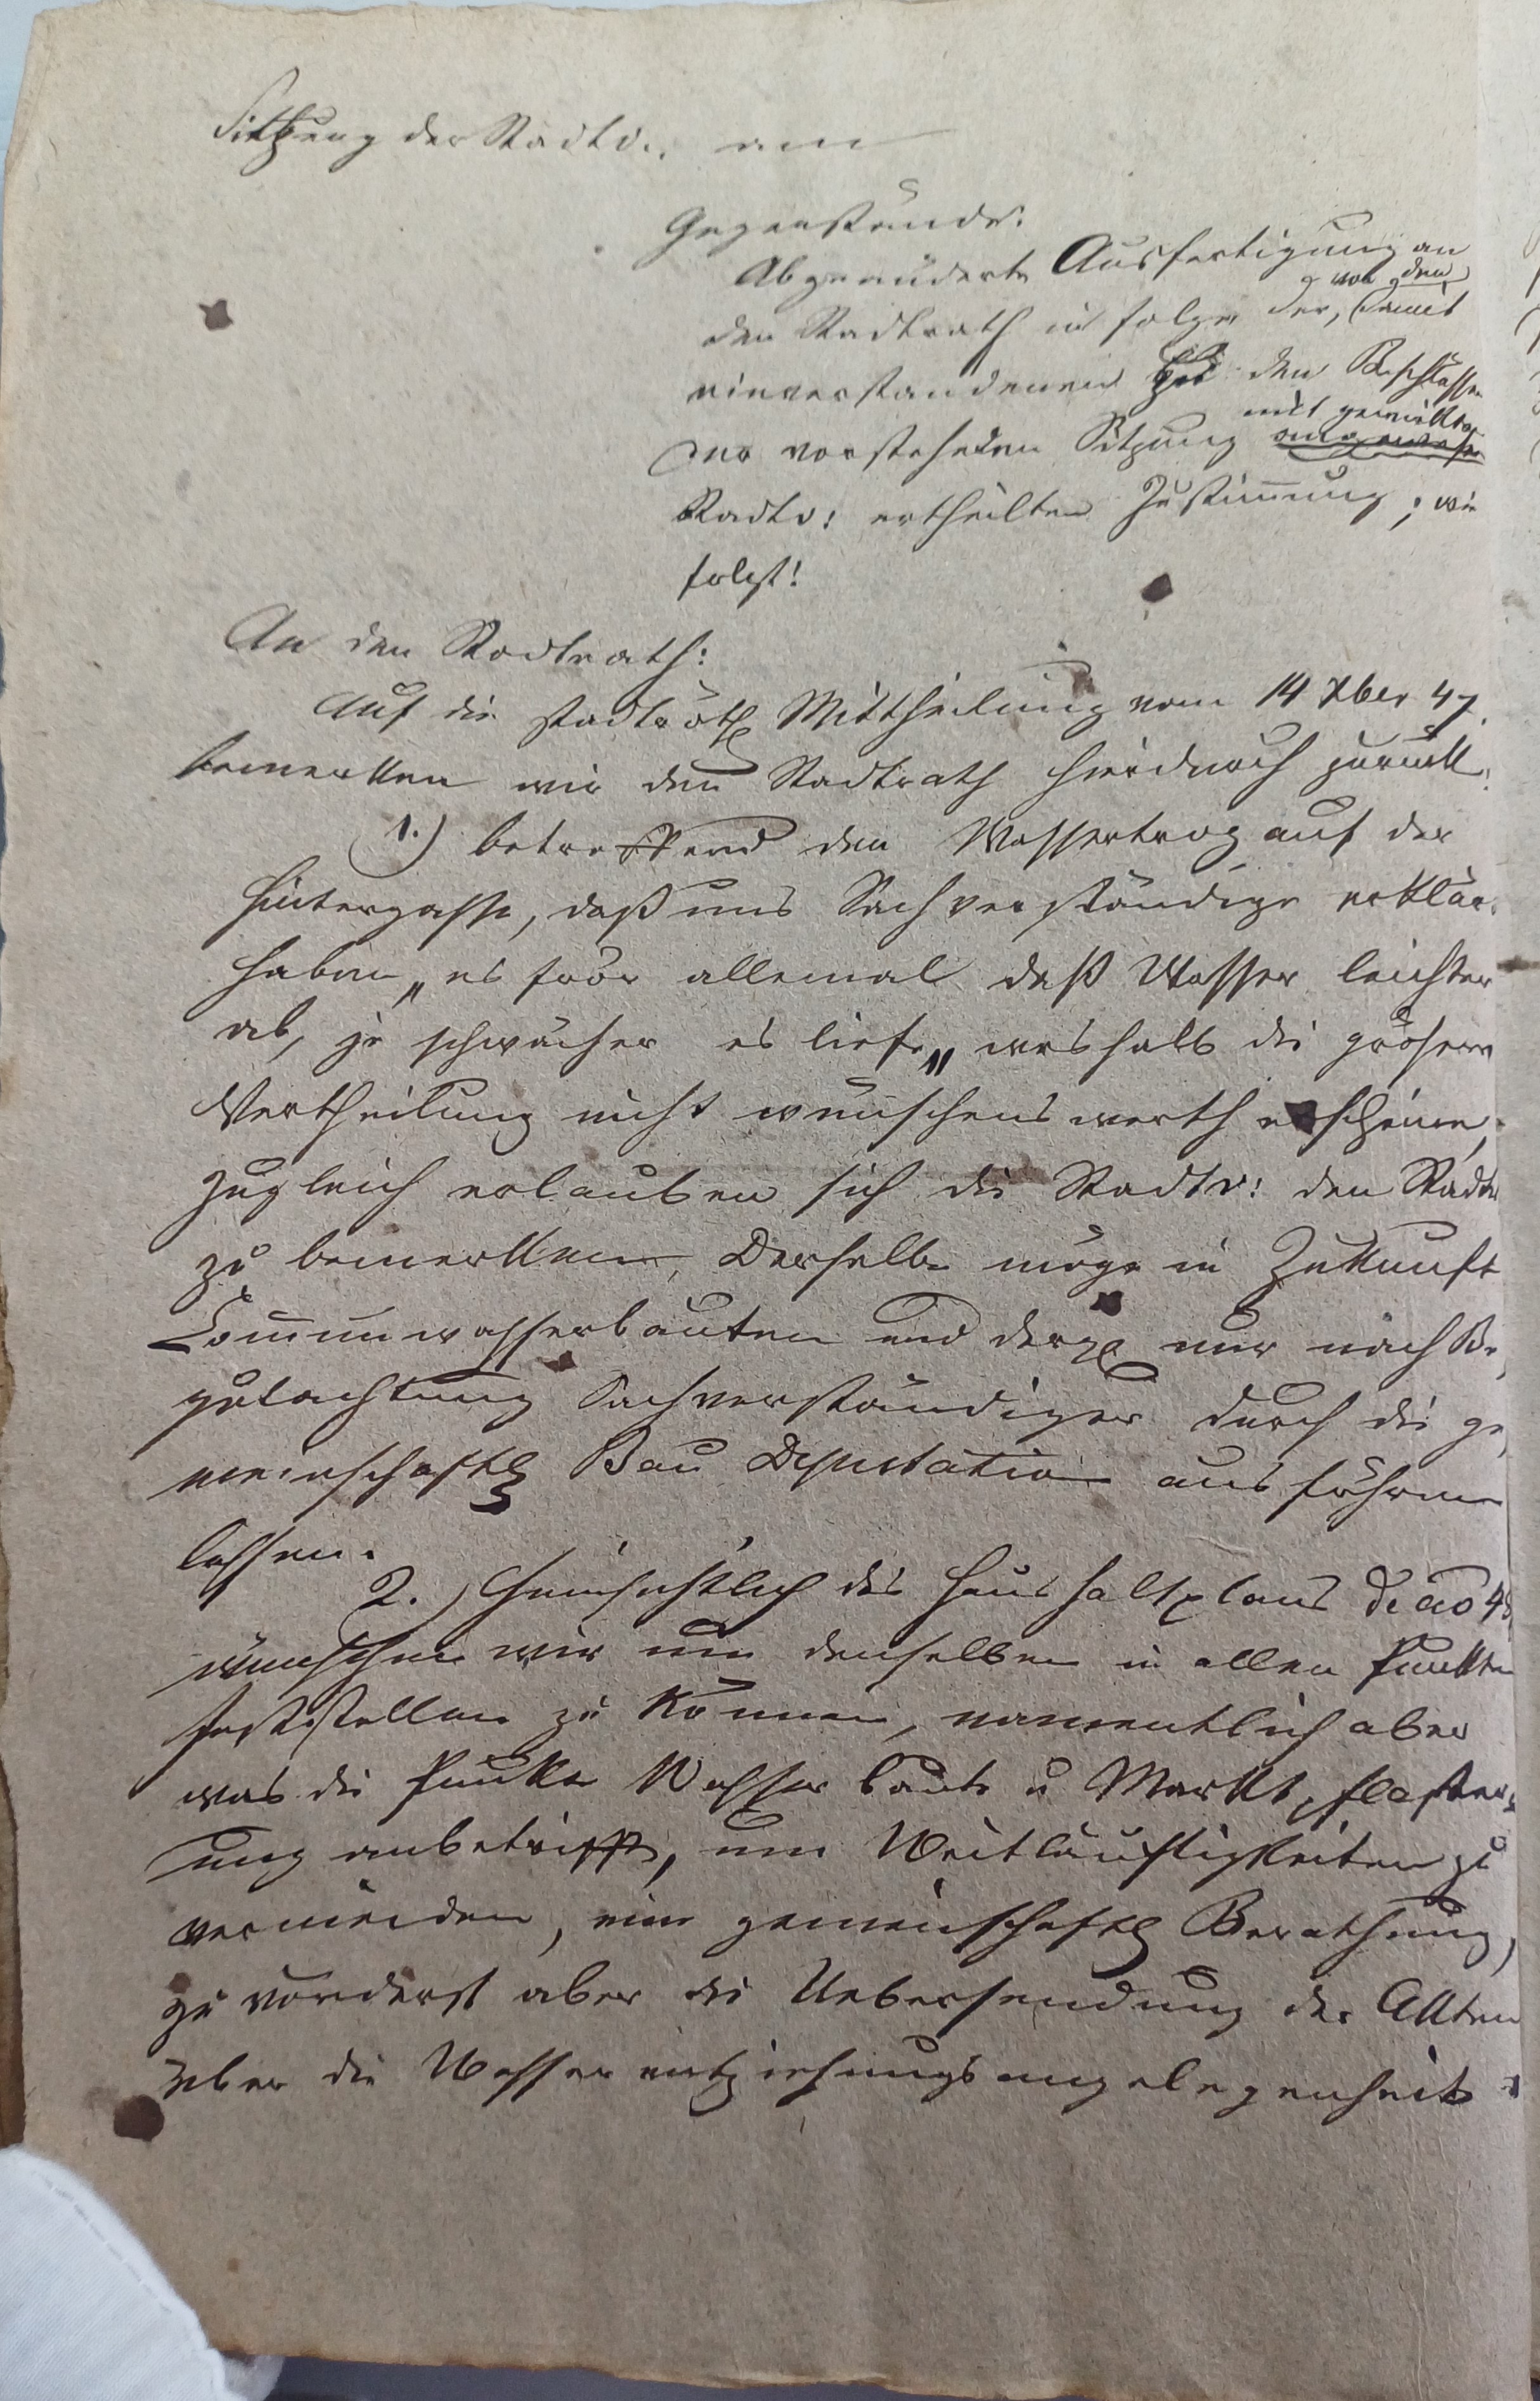 Sitzung der Stadtv. am
Gegenstände:
Abgeänderte Ausfertigung an
von den
den Stadtrath in folge der, damit
einverstandenen bei den Beschlüssen
mit gewirkten
der vorstehenden Sitzung
Stadtv: ertheilten Zustimmung, wie
folgt!
An den Stadtrath:
Auf die stadträthl Mittheilung vom 14 Xber 47.
bemerkken wir dem Stadtrath hierdurch zurükk:
1.) betreffend den Wassertrog auf der
Hintergasse, daß uns Sachverständige erklär
haben „es frör allemal daß Wasser leichter
ab, je schwächer es liefe„ weshalb die größere
Vertheilung nicht wünschens werth erscheine,
zugleich erlauben sich die Stadtv: den Stadtr
zu bemerkken, Derselbe möge in Zukunft
Communwasserbauten und dergl nur nach Be,
gutachtung Sachverständiger durch die ge,
meinschaftl Bau Deputation aus führen
lassen.
2.) Hinsichtlich des Haushaltplans de ao 48
wünschen wir um denselben in allen Punkten
feststellen zu können, namentlich aber
was die Punkte Wasser baute u Marktpflaster,
ung anbetrifft, um Weitläuftigkeiten zu
vermeiden, eine gemeinschaftl Berathung,
zuvörderst aber die Uebersendung der Akten
über die Wasser entziehungsangelegenheit